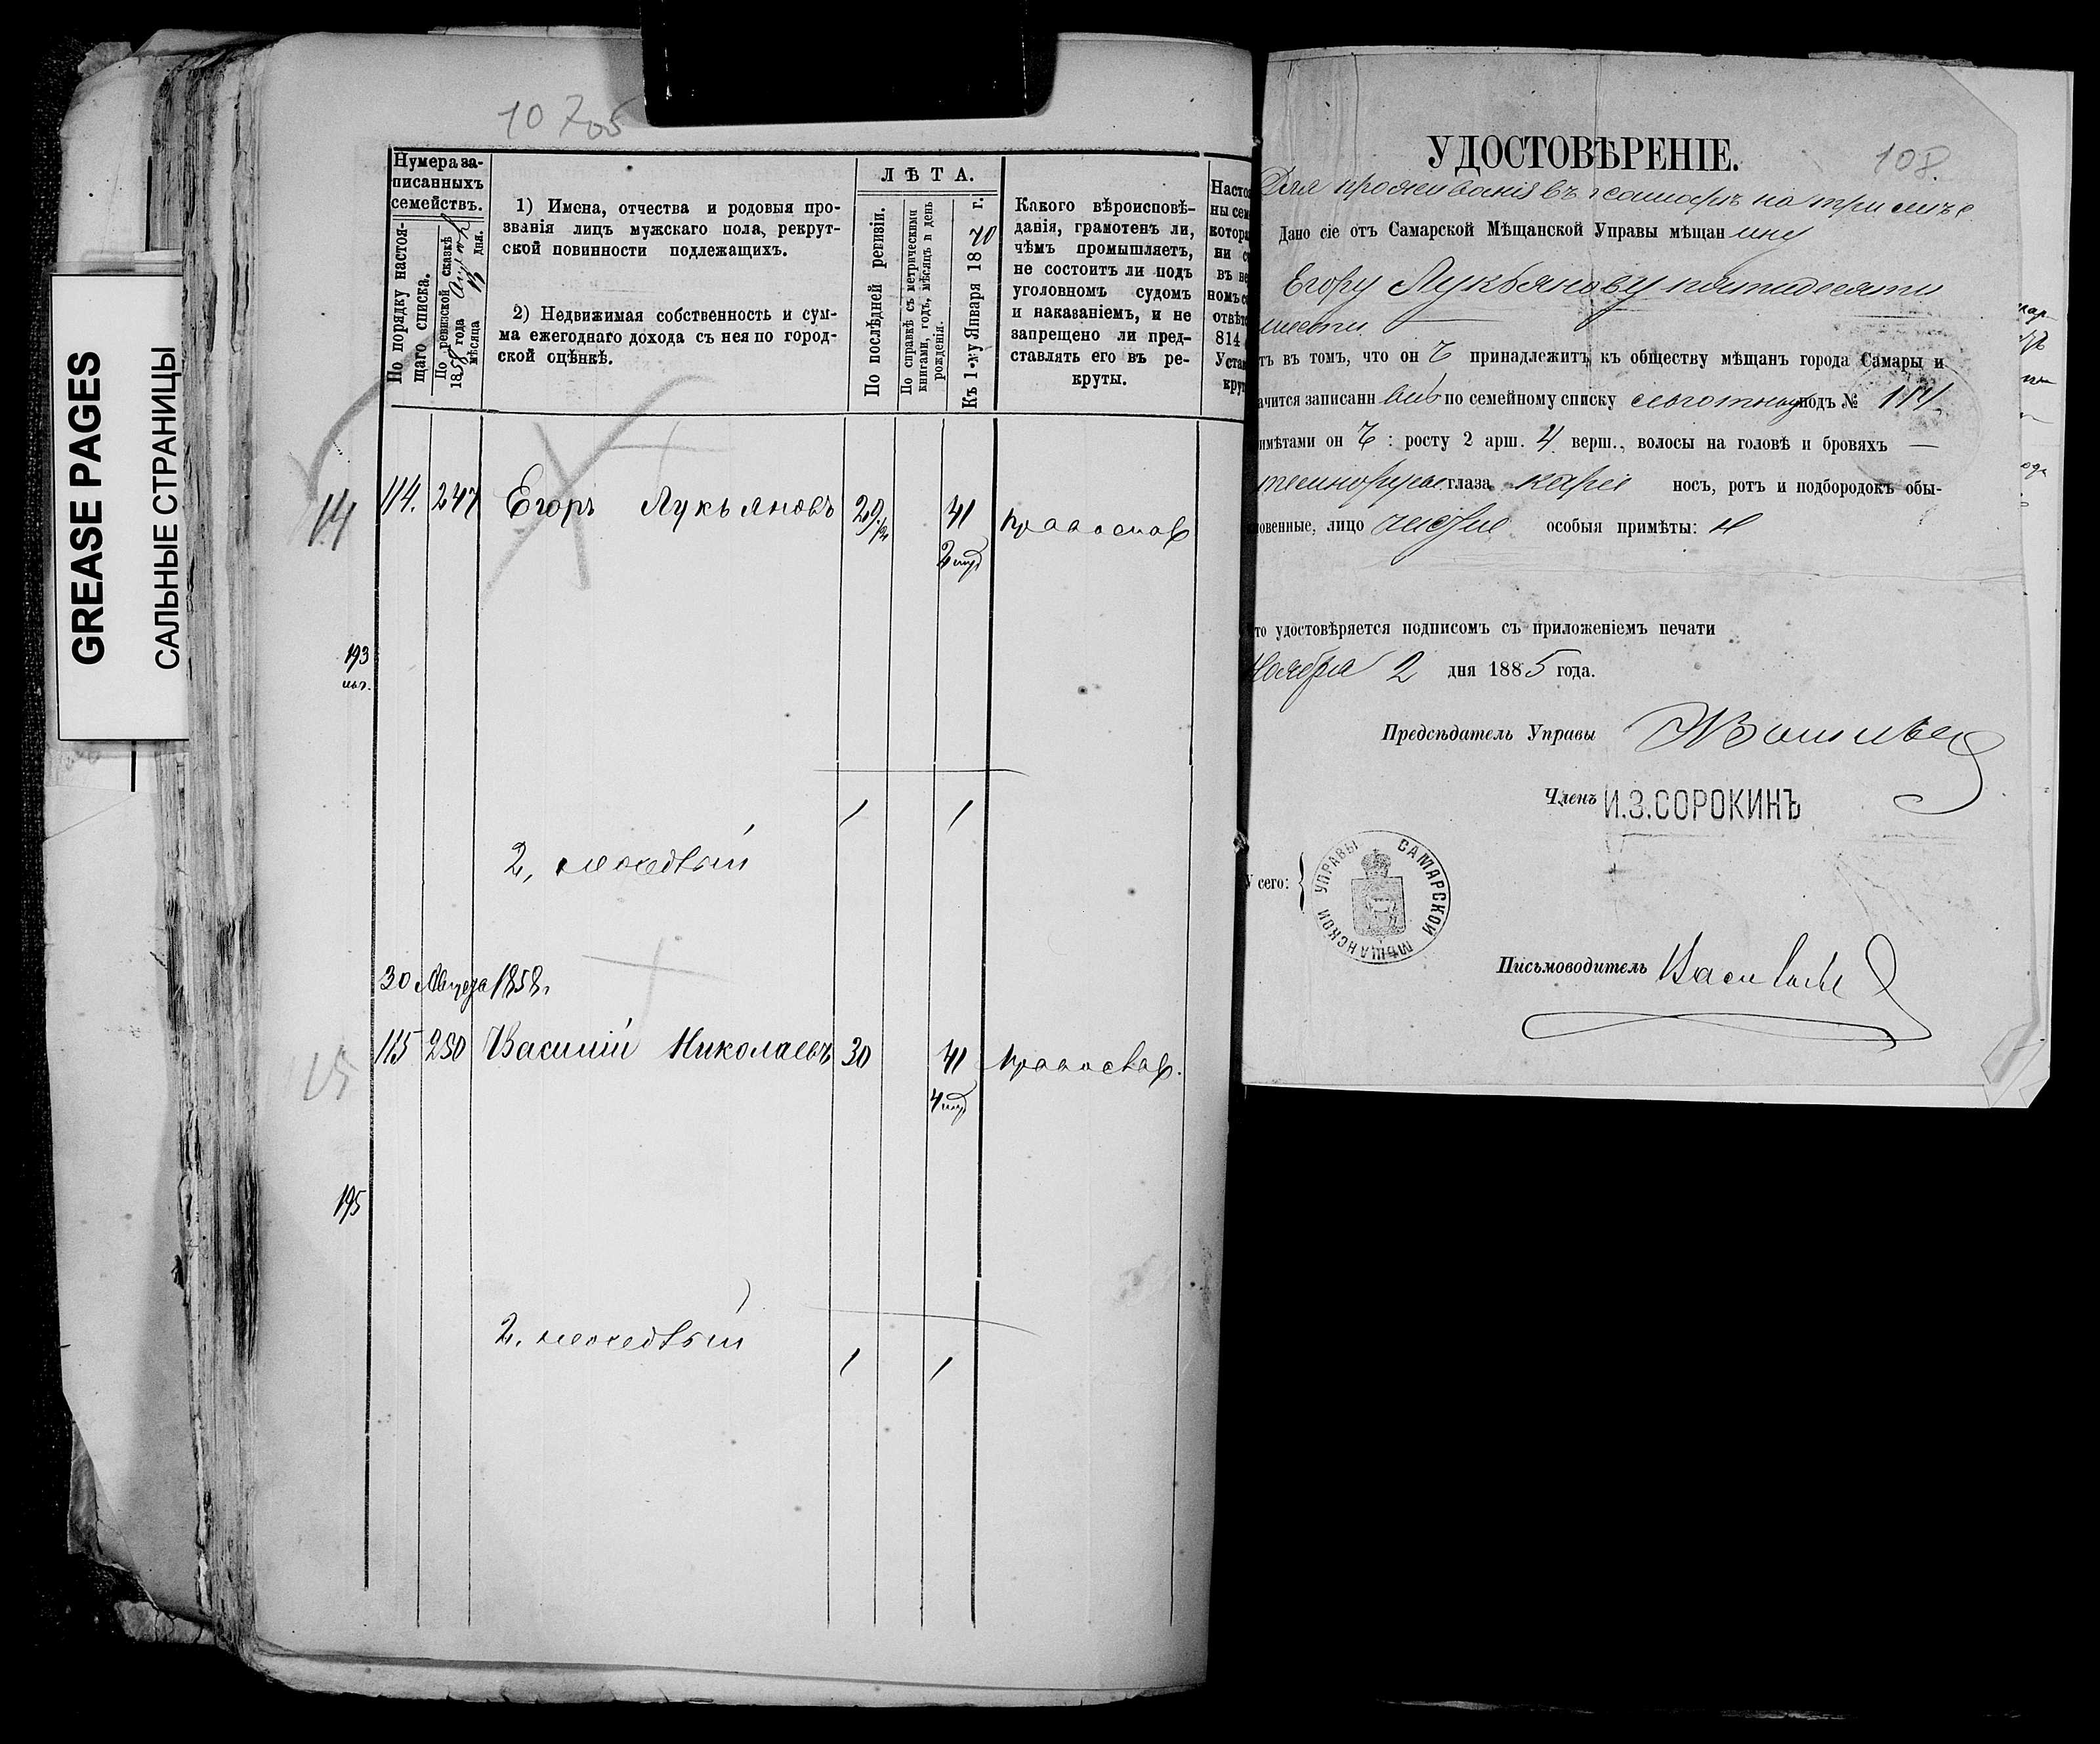 GREASE PAGES
САЛЬНЫЕ СТРАНИЦЫ
Нумера за-
писанныхъ
семействъ.
По порядку настоя-
щаго списка.
По ревизской сказкѣ
1858 года
мѣсяца дня.
1) Имена, отчества и родовыя про-
званія лицъ мужскаго пола, рекрут-
ской повинности подлежащихъ.
2) Недвижимая собственность и сум-
ма ежегоднаго дохода съ нея по город-
ской оцѣнкѣ.
ЛѢТА.
По послѣдней ревизіи.
По справкѣ съ метрическими
книгами, годъ, мѣсяцъ и день
рожденія.
Къ 1-му Января 1870 г.
Какого вѣроисповѣ-
данія, грамотенъ ли,
чѣмъ промышляетъ,
не состоитъ ли подъ
уголовномъ судомъ
и наказаніемъ, и не
запрещено ли пред-
ставлять его въ ре-
круты.
114
114. 247 Егоръ Лукьяновъ 29 41 православ
193
1 1
2,
30 Августа 1858,
115 250 Василій Николаевъ 30 41 православ.
195
2.
1 1
УДОСТОВѢРЕНІЕ.
108.
Для проживанія въ г Самарѣ на три мѣс
Дано сіе отъ Самарской Мѣщанской Управы мѣщанину
Егору Лукьянову пятидесяти
шести
ть въ томъ, что онъ принадлежитъ къ обществу мѣщанъ города Самары и
ачится записаннымъ по семейному списку льготному подъ № 114
имѣтами онъ: росту 2 арш. 4 верш., волосы на головѣ и бровяхъ —
темнорусые глаза каріе носъ, ротъ и подбородокъ обы-
новенные, лицо чистое особыя примѣты: н
то удостовѣряется подписомъ съ приложеніемъ печати
Ноября 2 дня 1885 года.
Предсѣдатель Управы
Членъ И.З.СОРОКИНЪ
У сего:
САМАРСКОЙ МѢЩАНСКОЙ УПРАВЫ
Письмоводитель